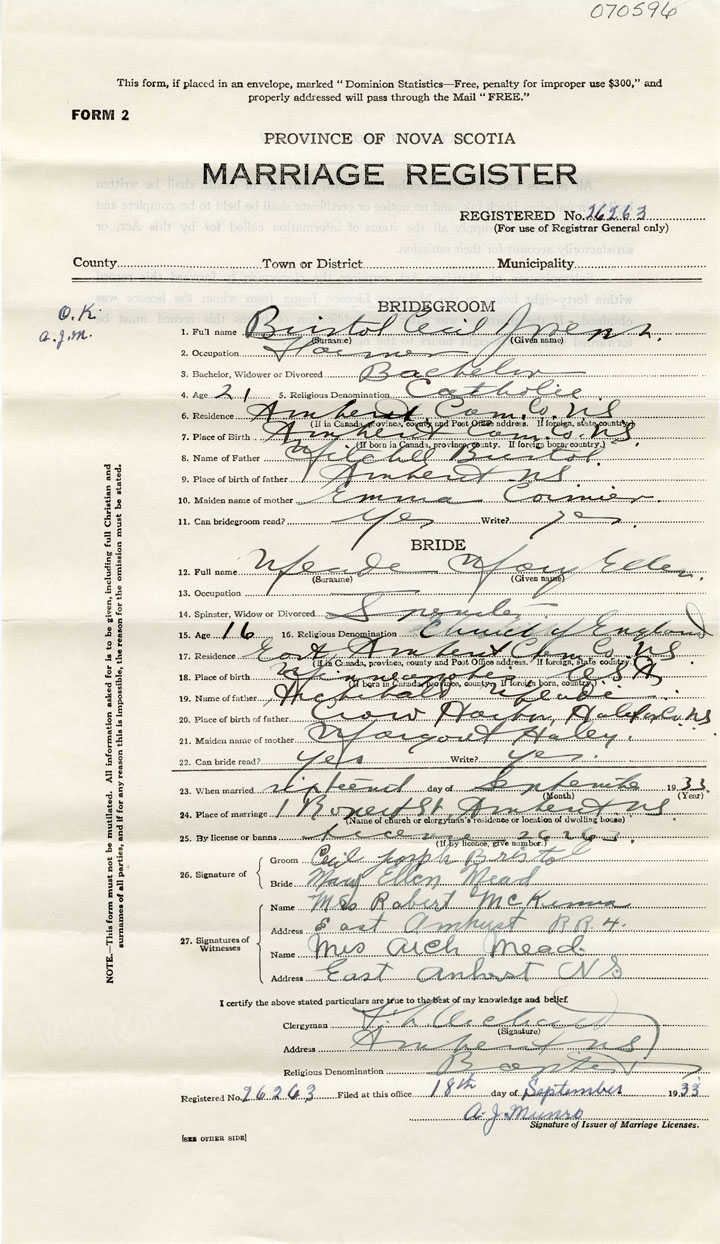 070596
This form, if placed in an envelope, marked "Dominion Statistics—Free, penalty for improper use $300," and
properly addressed will pass through the Mail "FREE."
FORM 2
PROVINCE OF NOVA SCOTIA
MARRIAGE REGISTER
REGISTERED No. 26263
(For use of Registrar General only)
County Town or District Municipality
O.K.
A.J.M.
BRIDEGROOM
1. Full name Bristol Cecil Joseph
(Surname) (Given name)
2. Occupation Farmer
3. Bachelor, Widower or Divorced Bachelor
4. Age 21 5. Religious Denomination Catholic
6. Residence Amherst Cum. Co. NS
(If in Canada, province, county and Post Office address. If foreign, state country)
7. Place of Birth Amherst Cum. Co. NS.
(If born in Canada, province, county. If foreign born, country.)
8. Name of Father Mitchell Bristol
9. Place of birth of father Amherst NS
10. Maiden name of mother Emma Cormier
11. Can bridegroom read? Yes Write? yes.
BRIDE
12. Full name Meade Mary Ellen
(Surname) (Given name)
13. Occupation
14. Spinster, Widow or Divorced Spinster
15. Age 16 16. Religious Denomination Church of England
17. Residence East Amherst Cum. Co. NS
(If in Canada, province, county and Post Office address. If foreign, state country)
18. Place of birth U.S.A
(If born in Canada, province, county. If foreign born, country.)
19. Name of father Archibald Meade
20. Place of birth of father Harbor, Halifax Co. NS
21. Maiden name of mother Margaret Haley
22. Can bride read? yes Write? yes.
23. When married day of September 1933
(Month) (Year)
24. Place of marriage 1 Rupert St. Amherst NS
(Name of church or clergyman's residence or location of dwelling house)
25. By license or banns License 26263.
(If by licence, give number.)
26. Signature of
Groom Cecil Joseph Bristol
Bride Mary Ellen Mead
27. Signatures of Witnesses
Name Mrs Robert McKinnon
Address East Amhurst RR 4.
Name Mrs Arch Mead
Address East Amherst NS
I certify the above stated particulars are true to the best of my knowledge and belief.
Clergyman
(Signature)
Address Amherst NS
Religious Denomination Baptist
Registered No. 26263 Filed at this office 18th day of September 1933
A.J. Munro
Signature of Issuer of Marriage Licenses.
[SEE OTHER SIDE]
NOTE.—This form must not be mutilated. All information asked for is to be given, including full Christian and
surnames of all parties, and if for any reason this is impossible, the reason for the omission must be stated.